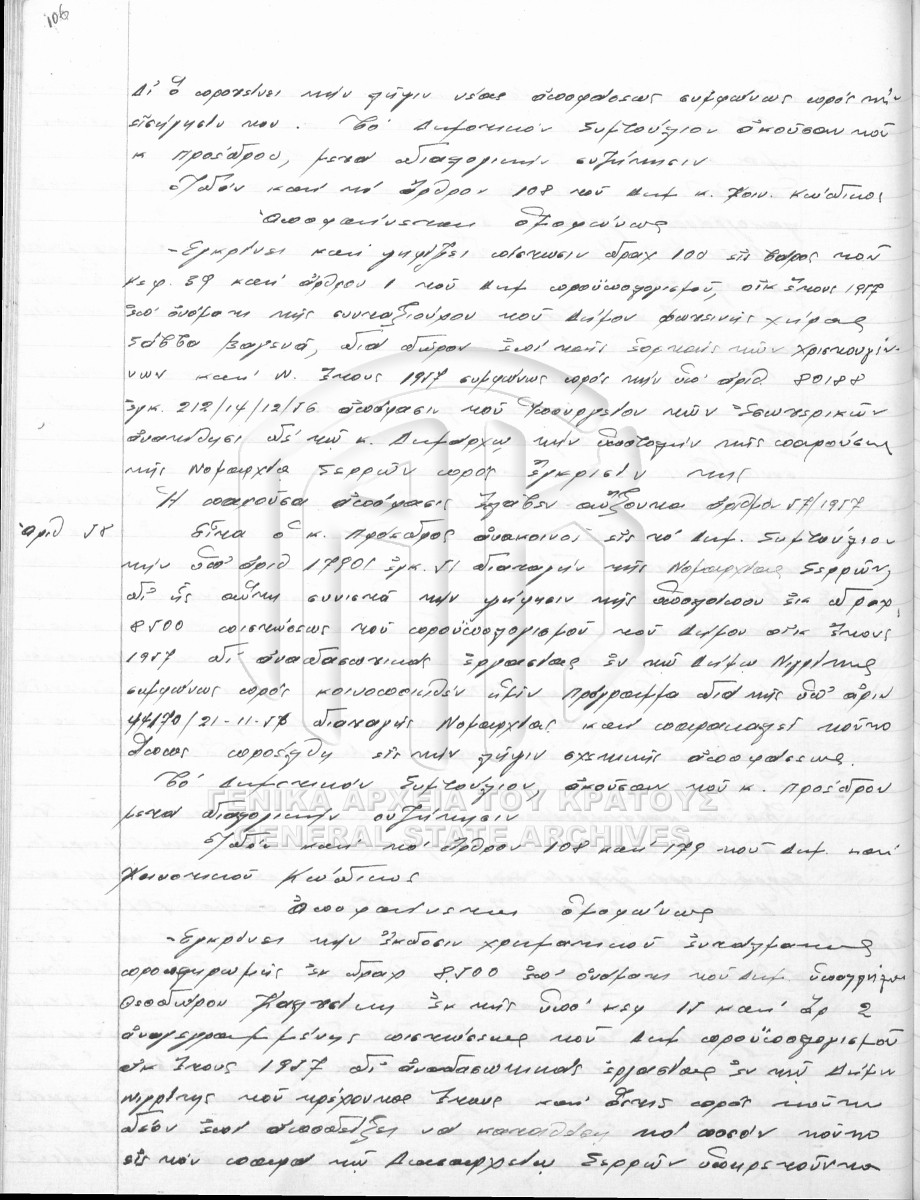 106
δι' ὃ προτείνει τὴν λῆψιν νέας ἀποφάσεως συμφώνως πρὸς τὴν
εἰσήγησίν του. Τὸ Δημοτικὸν Συμβούλιον ἀκοῦσαν τοῦ
κ προέδρου, μετὰ διαλογικὴν συζήτησιν
Ἰδὸν καὶ τὸ ἄρθρον 108 τοῦ Δημ κ. Κοιν. Κώδικος
Ἀποφαίνεται ὁμοφώνως
-Ἐγκρίνει καὶ ψηφίζει πίστωσιν δραχ 100 εἰς βάρος τοῦ
κεφ. 39 καὶ ἄρθρον 1 τοῦ Δημ προϋπολογισμοῦ, οἰκ ἔτους 1957
ἐπ' ὀνόματι τῆς συνταξιούχου τοῦ Δήμου Φωτεινῆς χήρας
Σάββα Βαγενᾶ, διὰ δῶρον ἐπὶ ταῖς ἑορταῖς τῶν Χριστουγέν-
νων καὶ Ν. Ἔτους 1957 συμφώνως πρὸς τὴν ὑπ' ἀριθ 80188
ἐγκ. 212/14/12/56 ἀπόφασιν τοῦ Ὑπουργείου τῶν Ἐσωτερικῶν
ἀνατίθησι δὲ τῷ κ. Δημάρχῳ τὴν ὑποβολὴν τῆς παρούσης
τῇ Νομαρχίᾳ Σερρῶν πρὸς ἔγκρισίν της
Ἡ παροῦσα ἀπόφασις ἔλαβεν αὔξοντα ἀριθμὸν 57/1957
ἀριθ 58
Εἶτα ὁ κ. Πρόεδρος ἀνακοινοῖ εἰς τὸ Δημ. Συμβούλιον
τὴν ὑπ' ἀριθ 17901 ἐγκ. 51 διαταγὴν τῆς Νομαρχίας Σερρῶν,
δι' ἧς αὕτη συνιστᾷ τὴν ψήφισιν τῆς ὑπολοίπου ἐκ δραχ,
8500 πιστώσεως τοῦ προϋπολογισμοῦ τοῦ Δήμου οἰκ ἔτους
1957 δι' ἀναδασωτικὰς ἐργασίας ἐν τῷ Δήμῳ Νιγρίτης
συμφώνως πρὸς κοινοποιηθὲν ἡμῖν πρόγραμμα διὰ τῆς ὑπ' ἀριθ
44170/21-11-56 διαταγῆς Νομαρχίας καὶ παρακαλεῖ τοῦτο
ὅπως προσέλθῃ εἰς τὴν λῆψιν σχετικῆς ἀποφάσεως.
Τὸ Δημοτικὸν Συμβούλιον, ἀκοῦσαν τοῦ κ. προέδρου
μετὰ διαλογικὴν συζήτησιν
ΓΕΝΙΚΑ ΑΡΧΕΙΑ ΤΟΥ ΚΡΑΤΟΥΣ
GENERAL STATE ARCHIVES
Ἰδὸν καὶ τὸ ἄρθρον 108 καὶ 179 τοῦ Δημ. καὶ
Κοινοτικοῦ Κώδικος
Ἀποφαίνεται ὁμοφώνως
-Ἐγκρίνει τὴν ἔκδοσιν χρηματικοῦ ἐντάλματος
προπληρωμῆς ἐκ δραχ 8.500 ἐπ' ὀνόματι τοῦ Δημ ὑπαλλήλου
Θεοδώρου ἐκ τῆς ὑπὸ κεφ 15 καὶ ἄρ 2
ἀναγεγραμμένης πιστώσεως τοῦ Δημ προϋπολογισμοῦ
οἰκ ἔτους 1957 δι' ἀναδασωτικὰς ἐργασίας ἐν τῷ Δήμῳ
Νιγρίτης τοῦ τρέχοντος ἔτους καὶ ὅστις πρὸς τοῦτο
δέον ἐπὶ ἀποδείξει νὰ καταθέσῃ τὸ ποσὸν τοῦτο
εἰς τὸν παρὰ τῷ Δασαρχείῳ Σερρῶν ὑπηρετοῦντα